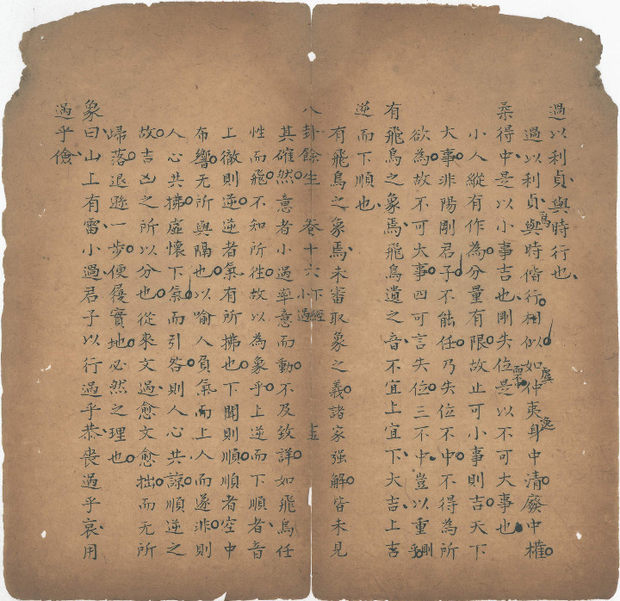 過以利貞與時行也
過以利貞與時偕行相似如仲夷身中清廢中權
虞逸
柔得中是以小事吉也剛失位是以不可大事也
小人縱有作為分量有限故止可小事則吉天下
大事非陽剛君子不能任乃失位不中不得為所
欲為故不可大事四可言失位三不中豈以重剛
有飛鳥之象焉飛鳥遺之音不宜上宜下大吉上吉
逆而下順也
有飛鳥之象焉未審取象之義諸家強解皆未見
八卦餘生 卷十六 下經 小過
其確然意者小過率意而動不及致詳如飛鳥任
性而飛不知所性故以為象乎上逆而下順者音
上徹則逆逆者氣有所拂也下聞則順順者空中
布響無所與隔也以喻人負氣而上人而遂非則
人心共拂虛懷下氣而引咎則人心共諒順逆之
故吉凶之所以分也從來文過愈文愈拙而無所
歸落退遜一步便履實地必然之理也
象曰山上有雷小過君子以行過乎恭喪過乎哀用
過乎儉